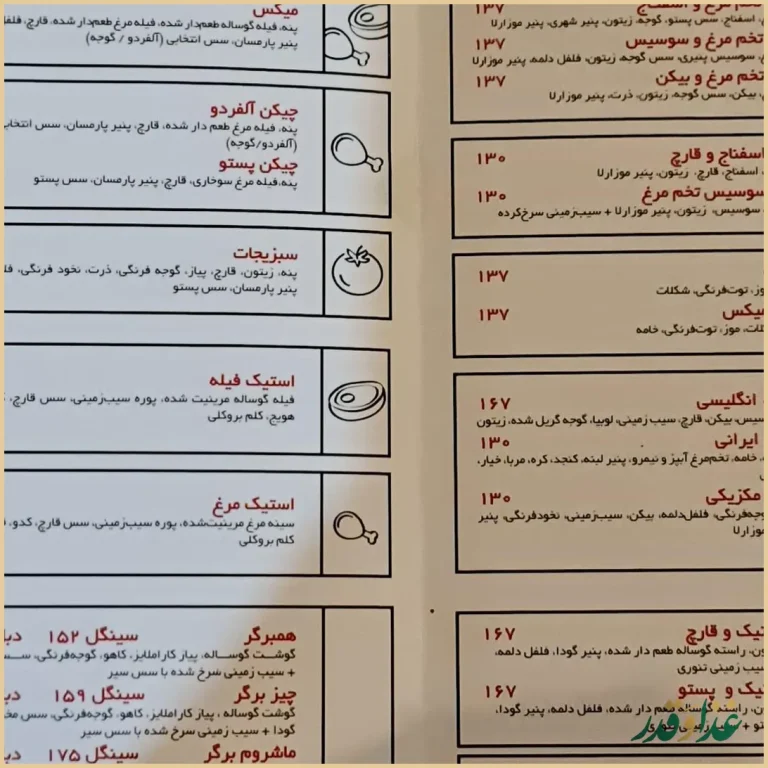 تخم مرغ و اسفناج ۱۳۷
اسفناج، سس پستو، گوجه، زیتون، پنیر شهری، پنیر موزارلا
تخم مرغ و سوسیس ۱۳۷
سوسیس پنیری، سس گوجه، زیتون، فلفل دلمه، پنیر موزارلا
تخم مرغ و بیکن ۱۳۷
بیکن، سس گوجه، زیتون، ذرت، پنیر موزارلا
اسفناج و قارچ ۱۳۰
اسفناج، قارچ، زیتون، پنیر موزارلا
سوسیس تخم مرغ ۱۳۰
سوسیس، زیتون، پنیر موزارلا + سیب‌زمینی سرخ‌کرده
۱۳۷
موز، توت‌فرنگی، شکلات
میکس ۱۳۷
موز، توت‌فرنگی، خامه
انگلیسی ۱۶۷
بیکن، قارچ، سیب زمینی، لوبیا، گوجه گریل شده، زیتون
ایرانی ۱۳۰
خامه، تخم‌مرغ آبپز و نیمرو، پنیر لبته، کنجد، کره، مربا، خیار،
مکزیکی ۱۳۰
فلفل‌دلمه، بیکن، سیب‌زمینی، نخودفرنگی، پنیر
موزارلا
و قارچ ۱۶۷
راسته گوساله طعم دار شده، پنیر گودا، فلفل دلمه،
سیب زمینی تنوری
و پستو ۱۶۷
راسته گوساله طعم دار شده، فلفل دلمه، پنیر گودا،
غذا و قدر
میکس
پنه، فیله گوساله طعم‌دار شده، فیله مرغ طعم‌دار شده، قارچ،
پنیر پارمسان، سس انتخابی (آلفردو / گوجه)
چیکن آلفردو
پنه، فیله مرغ طعم دار شده، قارچ، پنیر پارمسان، سس
(آلفردو/گوجه)
چیکن پستو
پنه،فیله مرغ سوخاری، قارچ، پنیر پارمسان، سس پستو
سبزیجات
پنه، زیتون، قارچ، پیاز، گوجه فرنگی، ذرت، نخود فرنگی،
پنیر پارمسان، سس پستو
استیک فیله
فیله گوساله مرینیت شده، پوره سیب‌زمینی، سس قارچ،
هویج، کلم بروکلی
استیک مرغ
سینه مرغ مرینیت‌شده، پوره سیب‌زمینی، سس قارچ، کدو،
کلم بروکلی
همبرگر سینگل ۱۵۲
گوشت گوساله، پیاز کاراملایز، کاهو، گوجه‌فرنگی،
+ سیب زمینی سرخ شده با سس سیر
چیز برگر سینگل ۱۵۹
گوشت گوساله ، پیاز کاراملایز، کاهو، گوجه‌فرنگی، سس
گودا + سیب زمینی سرخ شده با سس سیر
ماشروم برگر سینگل ۱۷۵